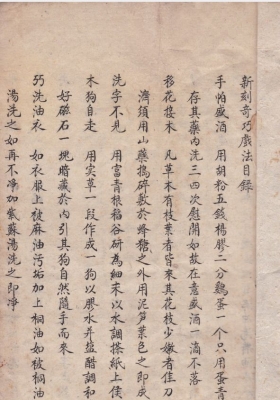 新刻奇巧戲法目録
手帕盛酒 用胡粉五錢楊膠二分鷄蛋一个只用蛋青
存其藥內洗三四次慰開如故在意盛酒一滴不落
移花接木 凡草木有枝葉者皆東其花枝少嫩者佳刀
濟須用山藥搗碎敷於蜂糖之外用泥笋葉包之即成
洗字不見 用富青根稻谷研為細末以水調搽紙上侯
木狗自走 用实草一段作成一狗以膠水并塩醋調和
好磁石一塊暗藏於內引其狗自然隨手而來
巧洗油衣 如衣服上被麻油污垢加上桐油如被桐油
湯洗之如再不凈加紫蘇湯洗之即凈